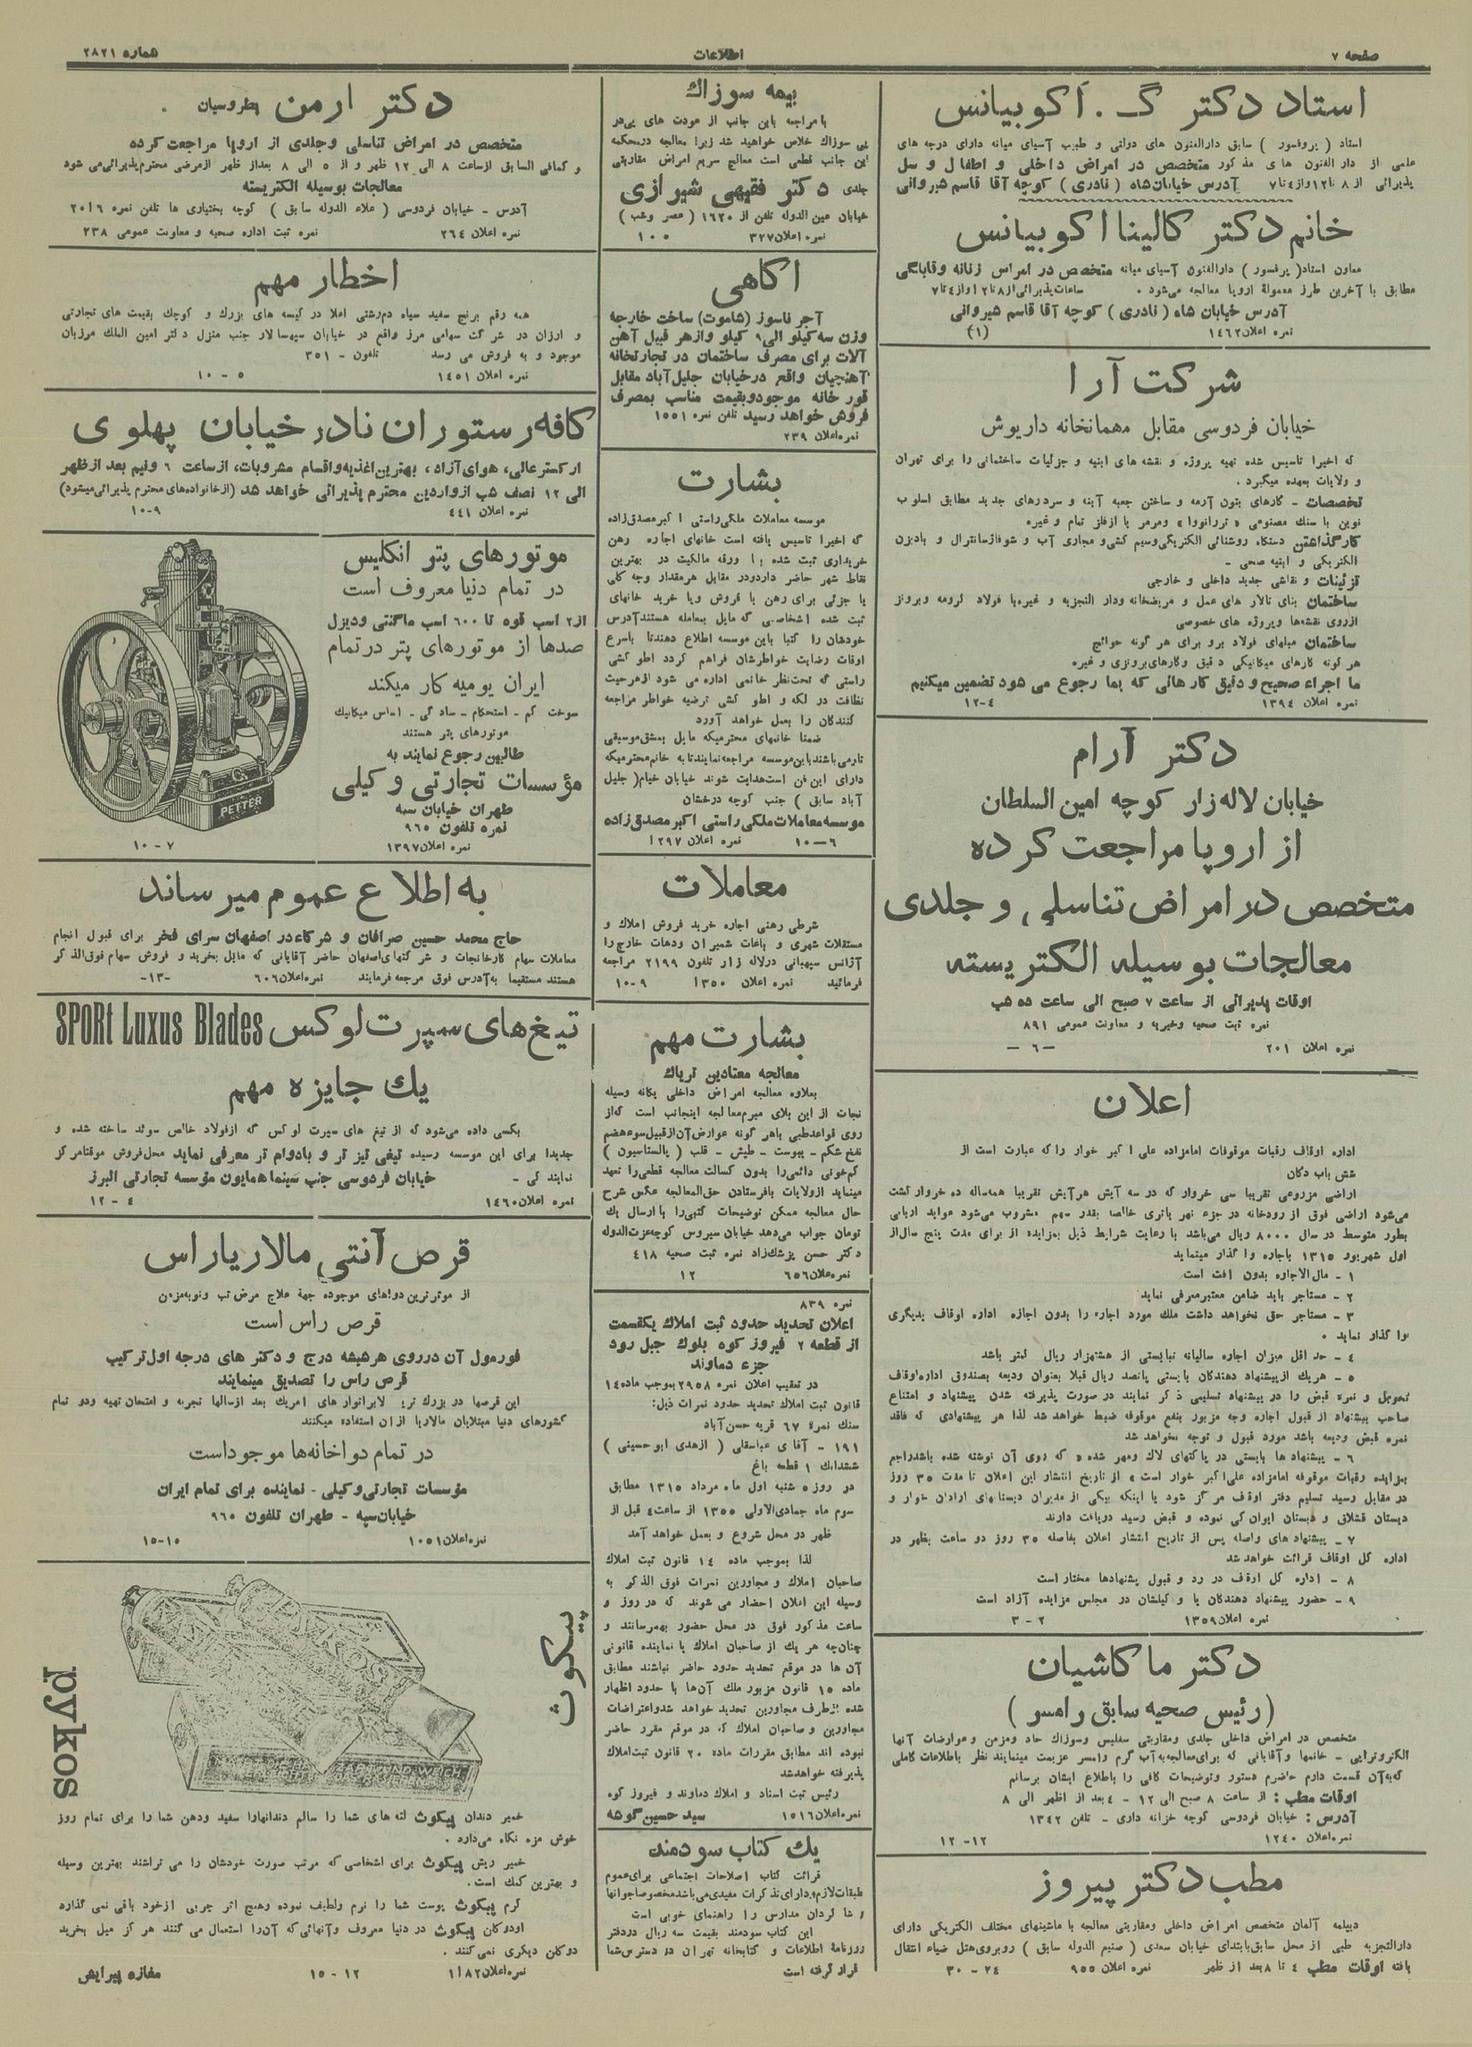 صفحه ۷
اطلاعات
شماره ۲۸۲۱
استاد دکتر گ . آکوبیانس
استاد ( پرفسور ) سابق دارالفنون های دولتی و طبیب آسیای میانه دارای درجه های
علمی از دار الفنون های مذکور متخصص در امراض داخلی و اطفال و سل
پذیرائی از ۸ تا ۱۲ و از ۴ تا ۷ آدرس خیابان شاه ( نادری ) کوچه آقا قاسم شیروانی
خانم دکتر کالینا اکوبیانس
معاون استاد ( پرفسور ) دارالفنون آسیای میانه متخصص در امراض زنانه وقابلگی
مطابق با آخرین طرز معمولهٔ اروپا معالجه می‌شود . ساعات پذیرائی از ۸ تا ۱۲ و از ۴ تا ۷
آدرس خیابان شاه ( نادری ) کوچه آقا قاسم شیروانی
نمره اعلان ۱۴۶۲ (۱)
شرکت آرا
خیابان فردوسی مقابل مهمانخانه داریوش
که اخیرا تاسیس شده تهیه پروژه و نقشه های ابنیه و جزئیات ساختمانی را برای تهران
و ولایات بعهده میگیرد .
تخصصات - کارهای بتون آرمه و ساختن جعبه آینه و سردرهای جدید مطابق اسلوب
نوین با سنک مصنوعی « تررانووا » ومرمر یا از فلز تمام و غیره
کارگذاشتن دستگاه روشنائی الکتریکی وسیم کشی و مجاری آب و شوفاژسانترال و بادبزن
الکتریکی و ابنیه صحی -
تزئینات و نقاشی جدید داخلی و خارجی
ساختمان بنای تالار های عمل و مریضخانه ودار التجزیه و غیره با فولاد کرومه وبرونز
از روی نقشه‌ها وپروژه های خصوصی
ساختمان مبلهای فولاد برو برای هر گونه حوائج
هر گونه کارهای میکانیکی دقیق وکارهای برونزی و غیره
ما اجراء صحیح و دقیق کار هائی که بما رجوع می شود تضمین میکنیم
نمره اعلان ۱۳۹۴ ۴-۱۲
دکتر آرام
خیابان لاله زار کوچه امین السلطان
از اروپا مراجعت کرده
متخصص در امراض تناسلی و جلدی
معالجات بوسیله الکتریسته
اوقات پذیرائی از ساعت ۷ صبح الی ساعت ده شب
نمره ثبت صحیه وخیریه و معاونت عمومی ۸۹۱
نمره اعلان ۲۰۱ -۶-
اعلان
اداره اوقاف رقبات موقوفات امامزاده علی اکبر خوار را که عبارت است از
شش باب دکان
اراضی مزروعی تقریبا سی خروار که در سه آیش هر آیش تقریبا همه‌ساله ده خروار کشت
می‌شود اراضی فوق از رودخانه در جزء نهر پاتری خالصا بقدر سهم مشروب می‌شود عواید اربابی
بطور متوسط در سال ۸۰۰۰ ریال می‌باشد با رعایت شرایط ذیل بمزایده از برای مدت پنج سال از
اول شهریور ۱۳۱۵ باجاره وا گذار مینماید
۱ - مال الاجاره بدون افت است
۲ - مستاجر باید ضامن معتبر معرفی نماید
۳ - مستاجر حق نخواهد داشت ملک مورد اجاره را بدون اجازه اداره اوقاف بدیگری
وا گذار نماید .
۴ - حد اقل میزان اجاره سالیانه نبایستی از هشتهزار ریال کمتر باشد
۵ - هریک از پیشنهاد دهندگان بایستی پانصد ریال قبلا بعنوان ودیعه بصندوق اداره اوقاف
تحویل و نمره قبض را در پیشنهاد تسلیمی ذکر نمایند در صورت پذیرفته شدن پیشنهاد و امتناع
صاحب پیشنهاد از قبول اجاره وجه مزبور بنفع موقوفه ضبط خواهد شد لذا هر پیشنهادی که فاقد
نمره قبض ودیعه باشد مورد قبول و توجه نخواهد شد
۶ - پیشنهاد ها بایستی در پاکتهای لاک ومهر شده « که روی آن نوشته شده باشد راجع
بمزایده رقبات موقوفه امامزاده علی‌اکبر خوار است » از تاریخ انتشار این اعلان تا مدت ۳۵ روز
در مقابل رسید تسلیم دفتر اوقاف مرکز شود یا اینکه بیکی از مدیران دبستانهای ارادان خوار و
دبستان قشلاق و دبستان ایوان کی نموده و قبض رسید دریافت دارند
۷ - پیشنهاد های واصله پس از تاریخ انتشار اعلان بفاصله ۳۵ روز دو ساعت بظهر در
اداره کل اوقاف قرائت خواهد شد
۸ - اداره کل اوقاف در رد و قبول پیشنهادها مختار است
۹ - حضور پیشنهاد دهندگان یا و کیلشان در مجلس مزایده آزاد است
نمره اعلان ۱۳۵۹ ۲ - ۳
دکتر ماکاشیان
( رئیس صحیه سابق رامسر )
متخصص در امراض داخلی جلدی ومقاربتی سفلیس وسوزاک حاد ومزمن و عوارضات آنها
الکتروتراپی - خانمها و آقایانی که برای معالجه به آب گرم رامسر عزیمت مینمایند نظر باطلاعات کاملی
که به آن قسمت دارم حاضرم دستور وتوضیحات کافی را باطلاع ایشان برسانم
اوقات مطب : از ساعت ۸ صبح الی ۱۲ - ۴ بعد از ظهر الی ۸
آدرس : خیابان فردوسی کوچه خزانه داری - تلفن ۱۳۴۲
نمره اعلان ۱۲۴۰ ۱۲-۱۲
مطب دکتر پیروز
دیپلمه آلمان متخصص امراض داخلی ومقاربتی معالجه با ماشینهای مختلف الکتریکی دارای
دارالتجزیه طبی از محل سابق بابتدای خیابان سعدی ( صنیع الدوله سابق ) روبروی هتل ضیاء انتقال
یافته اوقات مطب ۴ تا ۸ بعد از ظهر نمره اعلان ۹۵۵ ۲۴ - ۳۰
بیمه سوزاک
با مراجعه باین جانب از عودت های پی در
پی سوزاک خلاص خواهید شد زیرا معالجه در محکمه
این جانب قطعی است معالج سریع امراض مقاربتی
جلدی دکتر فقیهی شیرازی
خیابان عین الدوله تلفن از ۱۶۲۰ ( عصر وشب )
نمره اعلان ۳۲۷ ۱۰۰
آگاهی
آجر ناسوز (شاموت) ساخت خارجه
وزن سه کیلو الی ۹ کیلو واز هر قبیل آهن
آلات برای مصرف ساختمان در تجارتخانه
آهنچیان واقع در خیابان جلیل آباد مقابل
قور خانه موجود و بقیمت مناسب بمصرف
فروش خواهد رسید تلفن نمره ۱۵۵۱
نمره اعلان ۲۳۹
بشارت
موسسه معاملات ملکی راستی اکبر مصدق زاده
که اخیرا تاسیس یافته است خانهای اجاره رهن
خریداری ثبت شده با ورقه مالکیت در بهترین
نقاط شهر حاضر دارد در مقابل هر مقدار وجه کلی
یا جزئی برای رهن یا فروش ویا خرید خانهای
ثبت شده اشخاصی که مایل بمعامله هستند آدرس
خودشان را کتبا باین موسسه اطلاع دهند تا باسرع
اوقات رضایت خواطرشان فراهم گردد اطو کشی
راستی که تحت نظر خانمی اداره می شود از هر حیث
نظافت در لکه و اطو کشی ترضیه خواطر مراجعه
کنندگان را بعمل خواهد آورد
ضمنا خانمهای محترمیکه مایل بمشق موسیقی
تار می باشند باین موسسه مراجعه نمایند تا به خانم محترمیکه
دارای این فن است هدایت شوند خیابان خیام ( جلیل
آباد سابق ) جنب کوچه درخشان
موسسه معاملات ملکی راستی اکبر مصدق زاده
۶-۱۰ نمره اعلان ۱۲۹۷
معاملات
شرطی رهنی اجاره خرید فروش املاک و
مستغلات شهری و باغات شمیران ودهات خارج را
آژانس سپهبانی در لاله زار تلفون ۲۱۹۹ مراجعه
فرمائید نمره اعلان ۱۳۵۰ ۹-۱۰
بشارت مهم
معالجه معتادین تریاک
بعلاوه معالجه امراض داخلی یگانه وسیله
نجات از این بلای مبرم معالجه اینجانب است که از
روی قواعد طبی باهر گونه عوارض آن از قبیل سوء هضم
نفخ شکم - یبوست - طپش - قلب ( پالپتاسیون )
کم خونی دائمی را بدون کسالت معالجه قطعی را تعهد
مینماید از ولایات بافرستادن حق المعالجه عکس شرح
حال معالجه ممکن توضیحات کتبی را با ارسال یک
تومان جواب می‌دهد خیابان سیروس کوچه عزت الدوله
دکتر حسن پزشک‌زاد نمره ثبت صحیه ۴۱۸
نمره اعلان ۶۵۶ ۱۲
نمره ۸۳۹
اعلان تحدید حدود ثبت املاک یکقسمت
از قطعه ۲ فیروز کوه بلوک جبل رود
جزء دماوند
در تعقیب اعلان نمره ۲۹۵۸ بموجب ماده ۱۴
قانون ثبت املاک تحدید حدود نمرات ذیل:
سنک نمره ۶۷ قریه حسن آباد
۱۹۱ - آقای عباسقلی ( ازهدی ابوحسینی )
ششدانک ۱ قطعه باغ
در روز ۵ شنبه اول ماه مرداد ۱۳۱۵ مطابق
سوم ماه جمادی الاولی ۱۳۵۵ از ساعت ۴ قبل از
ظهر در محل شروع و بعمل خواهد آمد
لذا بموجب ماده ۱۴ قانون ثبت املاک
صاحبان املاک و مجاورین نمرات فوق الذکر به
وسیله این اعلان احضار می شوند که در روز و
ساعت مذکور فوق در محل حضور بهمرسانند و
چنانچه هر یک از صاحبان املاک یا نماینده قانونی
آن ها در موقع تحدید حدود حاضر نباشند مطابق
ماده ۱۵ قانون مزبور ملک آن‌ها با حدود اظهار
شده از طرف مجاورین تحدید خواهد شد واعتراضات
مجاورین و صاحبان املاک که در موقع مقرر حاضر
نبوده اند مطابق مقررات ماده ۲۰ قانون ثبت املاک
پذیرفته خواهد شد
رئیس ثبت اسناد و املاک دماوند و فیروز کوه
نمره اعلان ۱۵۱۶ سید حسین گوشه
یک کتاب سودمند
قرائت کتاب اصلاحات اجتماعی برای عموم
طبقات لازم و دارای تذکرات مفیدی می باشد مخصوصا جوانها
و شاگردان مدارس را راهنمای خوبی است
این کتاب سودمند بقیمت سه ریال در دفتر
روزنامه اطلاعات و کتابخانه تهران در دسترس شما
قرار گرفته است
دکتر ارمن پطروسیان .
متخصص در امراض تناسلی وجلدی از اروپا مراجعت کرده
و کمافی السابق از ساعت ۸ الی ۱۲ ظهر و از ۵ الی ۸ بعد از ظهر از مرضی محترم پذیرائی می شود
معالجات بوسیله الکتریسته
آدرس - خیابان فردوسی ( علاء الدوله سابق ) کوچه بختیاری ها تلفن نمره ۲۰۱۶
نمره اعلان ۲۶۴ نمره ثبت اداره صحیه و معاونت عمومی ۲۳۸
اخطار مهم
همه رقم برنج سفید سیاه دم رشتی اعلا در کیسه های بزرک و کوچک بقیمت های تجارتی
و ارزان در شرکت سهامی مرز واقع در خیابان سپهسالار جنب منزل دکتر امین الملک مرزبان
موجود و به فروش می رسد تلفون - ۳۵۱
نمره اعلان ۱۴۵۱ ۵ - ۱۰
کافه رستوران نادر خیابان پهلوی
ارکستر عالی، هوای آزاد، بهترین اغذیه و اقسام مشروبات، از ساعت ۶ ونیم بعد از ظهر
الی ۱۲ نصف شب از واردین محترم پذیرائی خواهد شد (از خانواده‌های محترم پذیرائی میشود)
نمره اعلان ۴۴۱ ۹-۱۰
موتورهای پتر انگلیس
در تمام دنیا معروف است
از ۲ اسب قوه تا ۶۰۰ اسب ماگنتی ودیزل
صدها از موتورهای پتر در تمام
ایران یومیه کار میکند
سوخت کم - استحکام - سادگی - اساس میکانیک
موتورهای پتر هستند
طالبین رجوع نمایند به
مؤسسات تجارتی وکیلی
طهران خیابان سپه
نمره تلفون ۹۶۰
نمره اعلان ۱۳۹۷ ۷ - ۱۰
PETTER
به اطلاع عموم میرساند
حاج محمد حسین صرافان و شرکاء در اصفهان سرای فخر برای قبول انجام
معاملات سهام کارخانجات و شرکتهای اصفهان حاضر آقایانی که مایل بخرید و فروش سهام فوق الذکر
هستند مستقیما به آدرس فوق مرجعه فرمایند نمره اعلان ۶۰۶ -۱۳-
تیغ‌های سپرت لوکس SPORt Luxus Blades
یک جایزه مهم
بکسی داده می‌شود که از تیغ های سپرت لوکس که از فولاد خالص سوئد ساخته شده و
جدیدا برای این موسسه رسیده تیغی تیز تر و بادوام تر معرفی نماید محل فروش موقتا مرکز
نمایندگی - خیابان فردوسی جنب سینما همایون مؤسسه تجارتی البرز
نمره اعلان ۱۴۶۰ ۴ - ۱۲
قرص آنتی مالاریا راس
از موثرترین دواهای موجوده جهة علاج مرض تب ونوبه مزمن
قرص راس است
فورمول آن در روی هر شیشه درج و دکتر های درجه اول ترکیب
قرص راس را تصدیق مینمایند
این قرصها در بزرک ترین لابراتوار های امریک بعد از سالها تجربه و امتحان تهیه ودر تمام
کشورهای دنیا مبتلایان مالاریا از آن استفاده میکنند
در تمام دواخانه‌ها موجود است
مؤسسات تجارتی وکیلی - نماینده برای تمام ایران
خیابان سپه - طهران تلفون ۹۶۰
نمره اعلان ۱۰۵۱ ۱۵-۱۵
پیکوث
pykos
خمیر دندان پیکوث لثه های شما را سالم دندانهارا سفید ودهن شما را برای تمام روز
خوش مزه نگاه می‌دارد .
خمیر ریش پیکوث برای اشخاصی که مرتب صورت خودشان را می تراشند بهترین وسیله
و بهترین کمک است .
کرم پیکوث پوست شما را نرم ولطیف نموده وهیچ اثر چربی از خود باقی نمی گذارد
اودوکلن پیکوث در دنیا معروف وآنهائی که آن را استعمال می کنند هر گز میل بخرید
دوکلن دیگری نمی کنند .
نمره اعلان ۱۱۸۲ ۱۲ - ۱۵ مغازه پیرایش